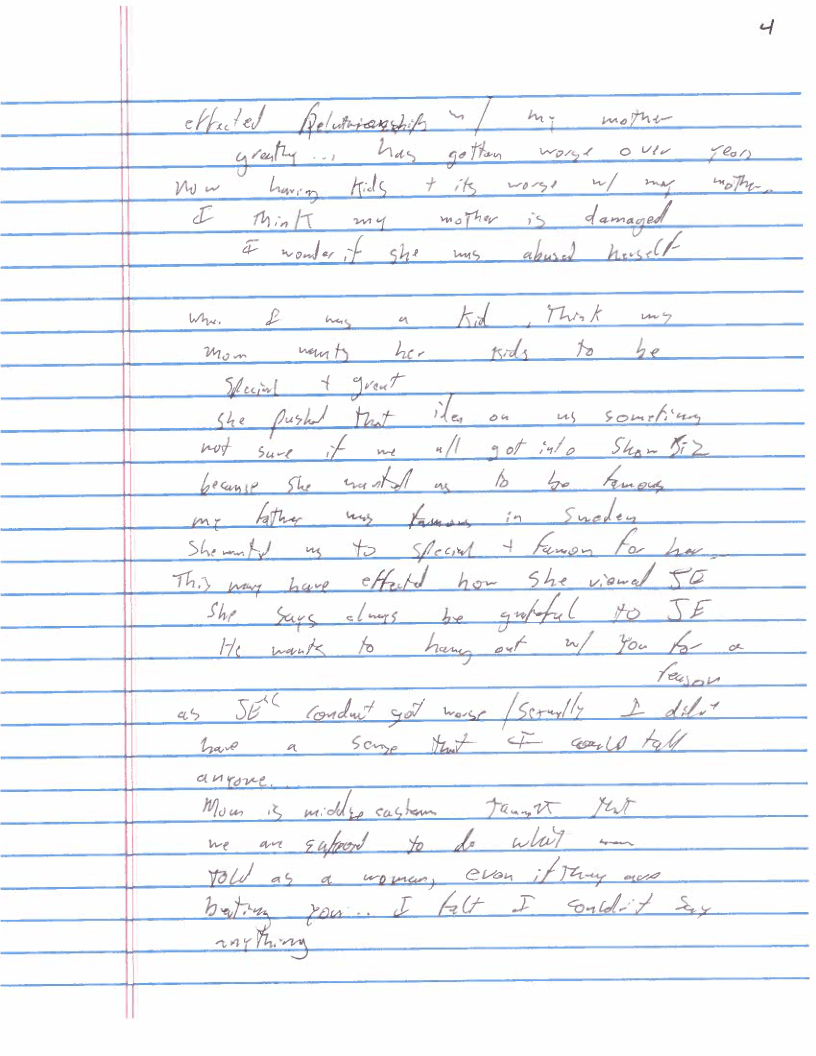 4
effected Relationship w/ my mother
greatly ... has gotten worse over years
Now having Kids + its worse w/ my mother..
I think my mother is damaged
I wonder if she was abused herself
When I was a Kid, Think my
mom wants her Kids to be
Special + great
she pushed that idea on us
not sure if we all got into Show Biz
because she wanted us to be famous
my father was famous in Sweden
She wanted us to special + famous for her
This may have effected how she viewed JE
She says always be grateful to JE
He wants to hang out w/ you for a
reason
as JE conduct got worse / Sexually I didn't
have a sense that I could tell
anyone...
Mom is middle eastern taught that
we are to do what
told as a woman, even if They are
beating you... I felt I couldn't say
anything